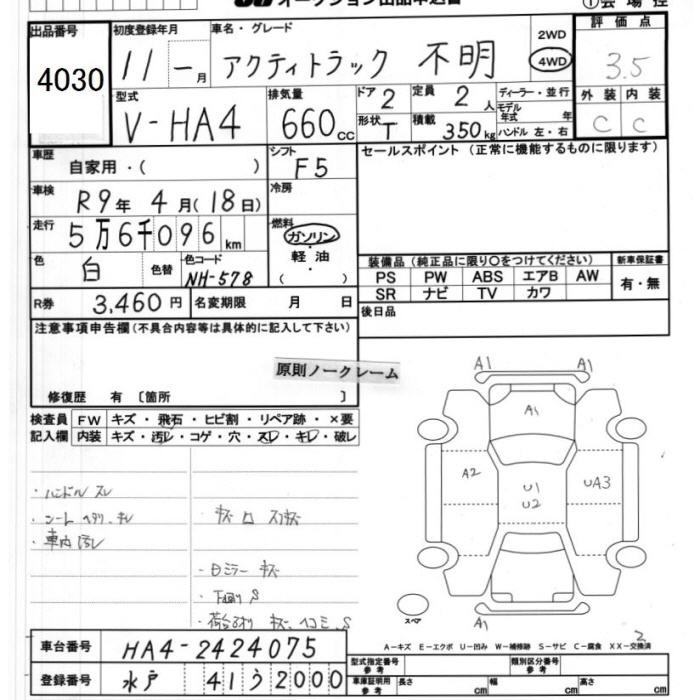 オークション出品申込書
①会場控
出品番号
4030
初度登録年月
11 - 月
車名・グレード
アクティトラック 不明
2WD
4WD
評価点
3.5
型式
V-HA4
排気量
660 cc
ドア 2
形状 T
定員 2 人
積載 350 kg
ディーラー・並行
モデル年式 年
ハンドル 左・右
外装 内装
C C
車歴
自家用・( )
シフト
F5
セールスポイント (正常に機能するものに限ります)
車検
R9年 4月(18日)
冷房
走行
5万6千096 km
燃料
ガソリン
軽油
( ・ )
色
白
色替
色コード
NH-578
装備品(純正品に限り○をつけてください)
新車保証書
PS PW ABS エアB AW
SR ナビ TV カワ
有・無
R券 3,460円
名変期限 月 日
後日品
注意事項申告欄(不具合内容等は具体的に記入して下さい)
原則ノークレーム
修復歴 有 〔箇所 〕
検査員 FW キズ・飛石・ヒビ割・リペア跡・×要
記入欄 内装 キズ・汚レ・コゲ・穴・スレ・キレ・破レ
・ハンドル スレ
・シート ヘタリ、キレ
・車内 汚レ
・キズ
・ロミラー キズ
・下回り S
キズ・ヘコミ、S
A1 A1
A1
A2
U1
U2
UA3
A1
スペア
2
A-キズ E-エクボ U-凹み W-補修跡 S-サビ C-腐食 XX-交換済
車台番号
HA4-2424075
登録番号
水戸 41う2000
型式指定番号 参考
類別区分番号 参考
車庫証明用 参考
長さ cm 幅 cm 高さ cm